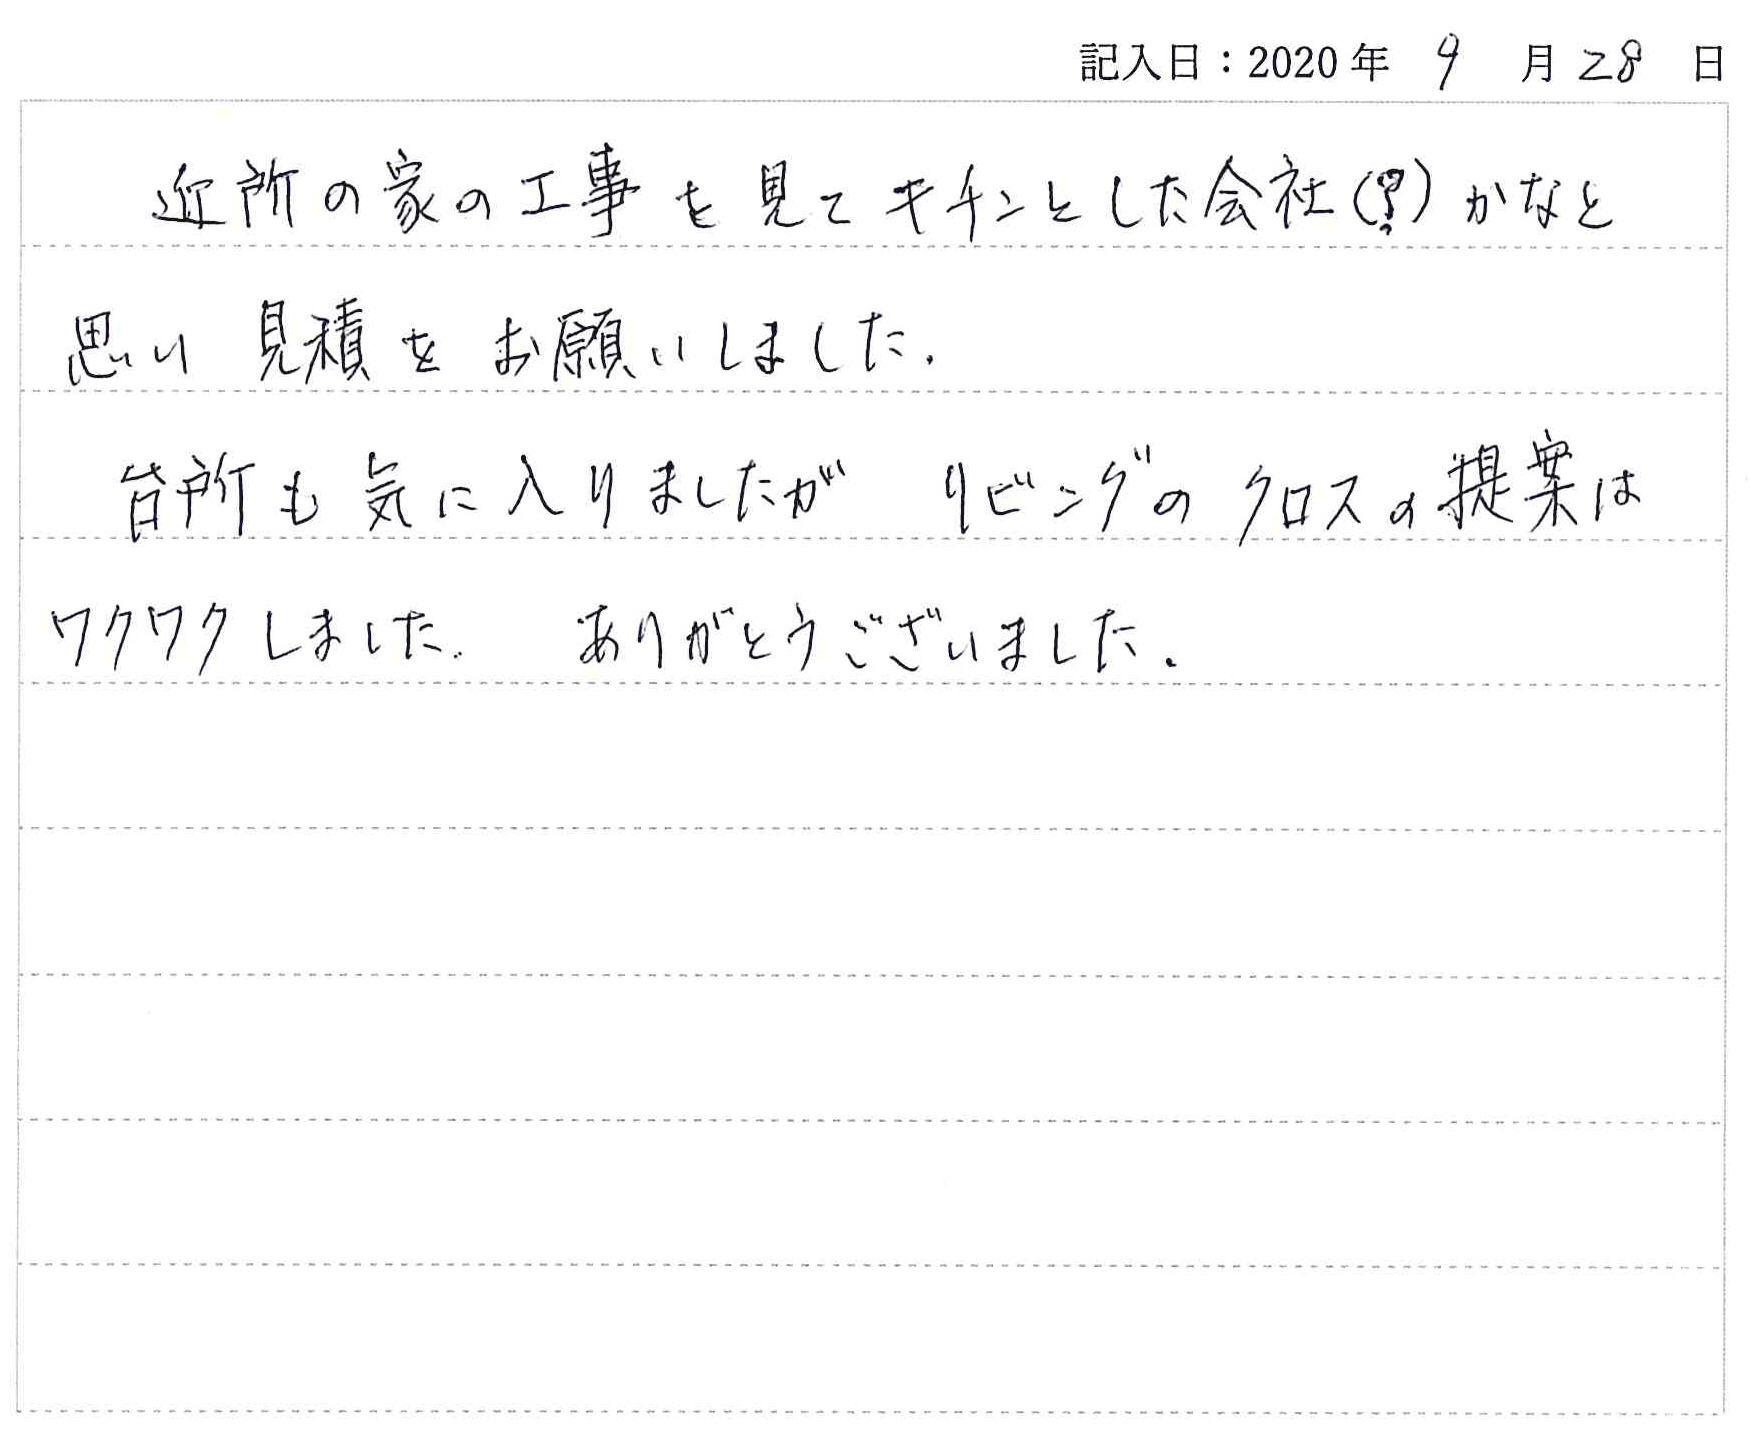 記入日：2020年 9 月 28 日
近所の家の工事を見てキチンとした会社(?)かなと
思い 見積を お願いしました.
台所も気に入りましたが リビングのクロスの提案は
ワクワクしました. ありがとうございました.